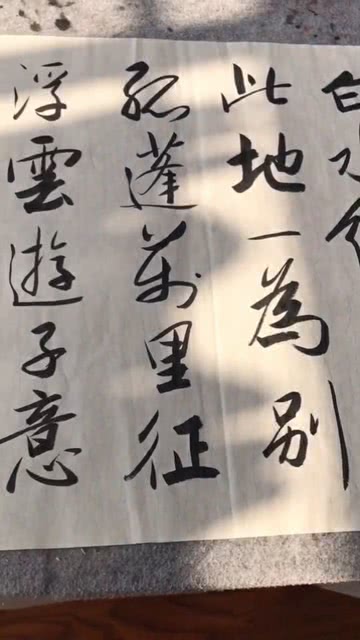 白水
此地一為別
孤蓬萬里征
浮雲遊子意